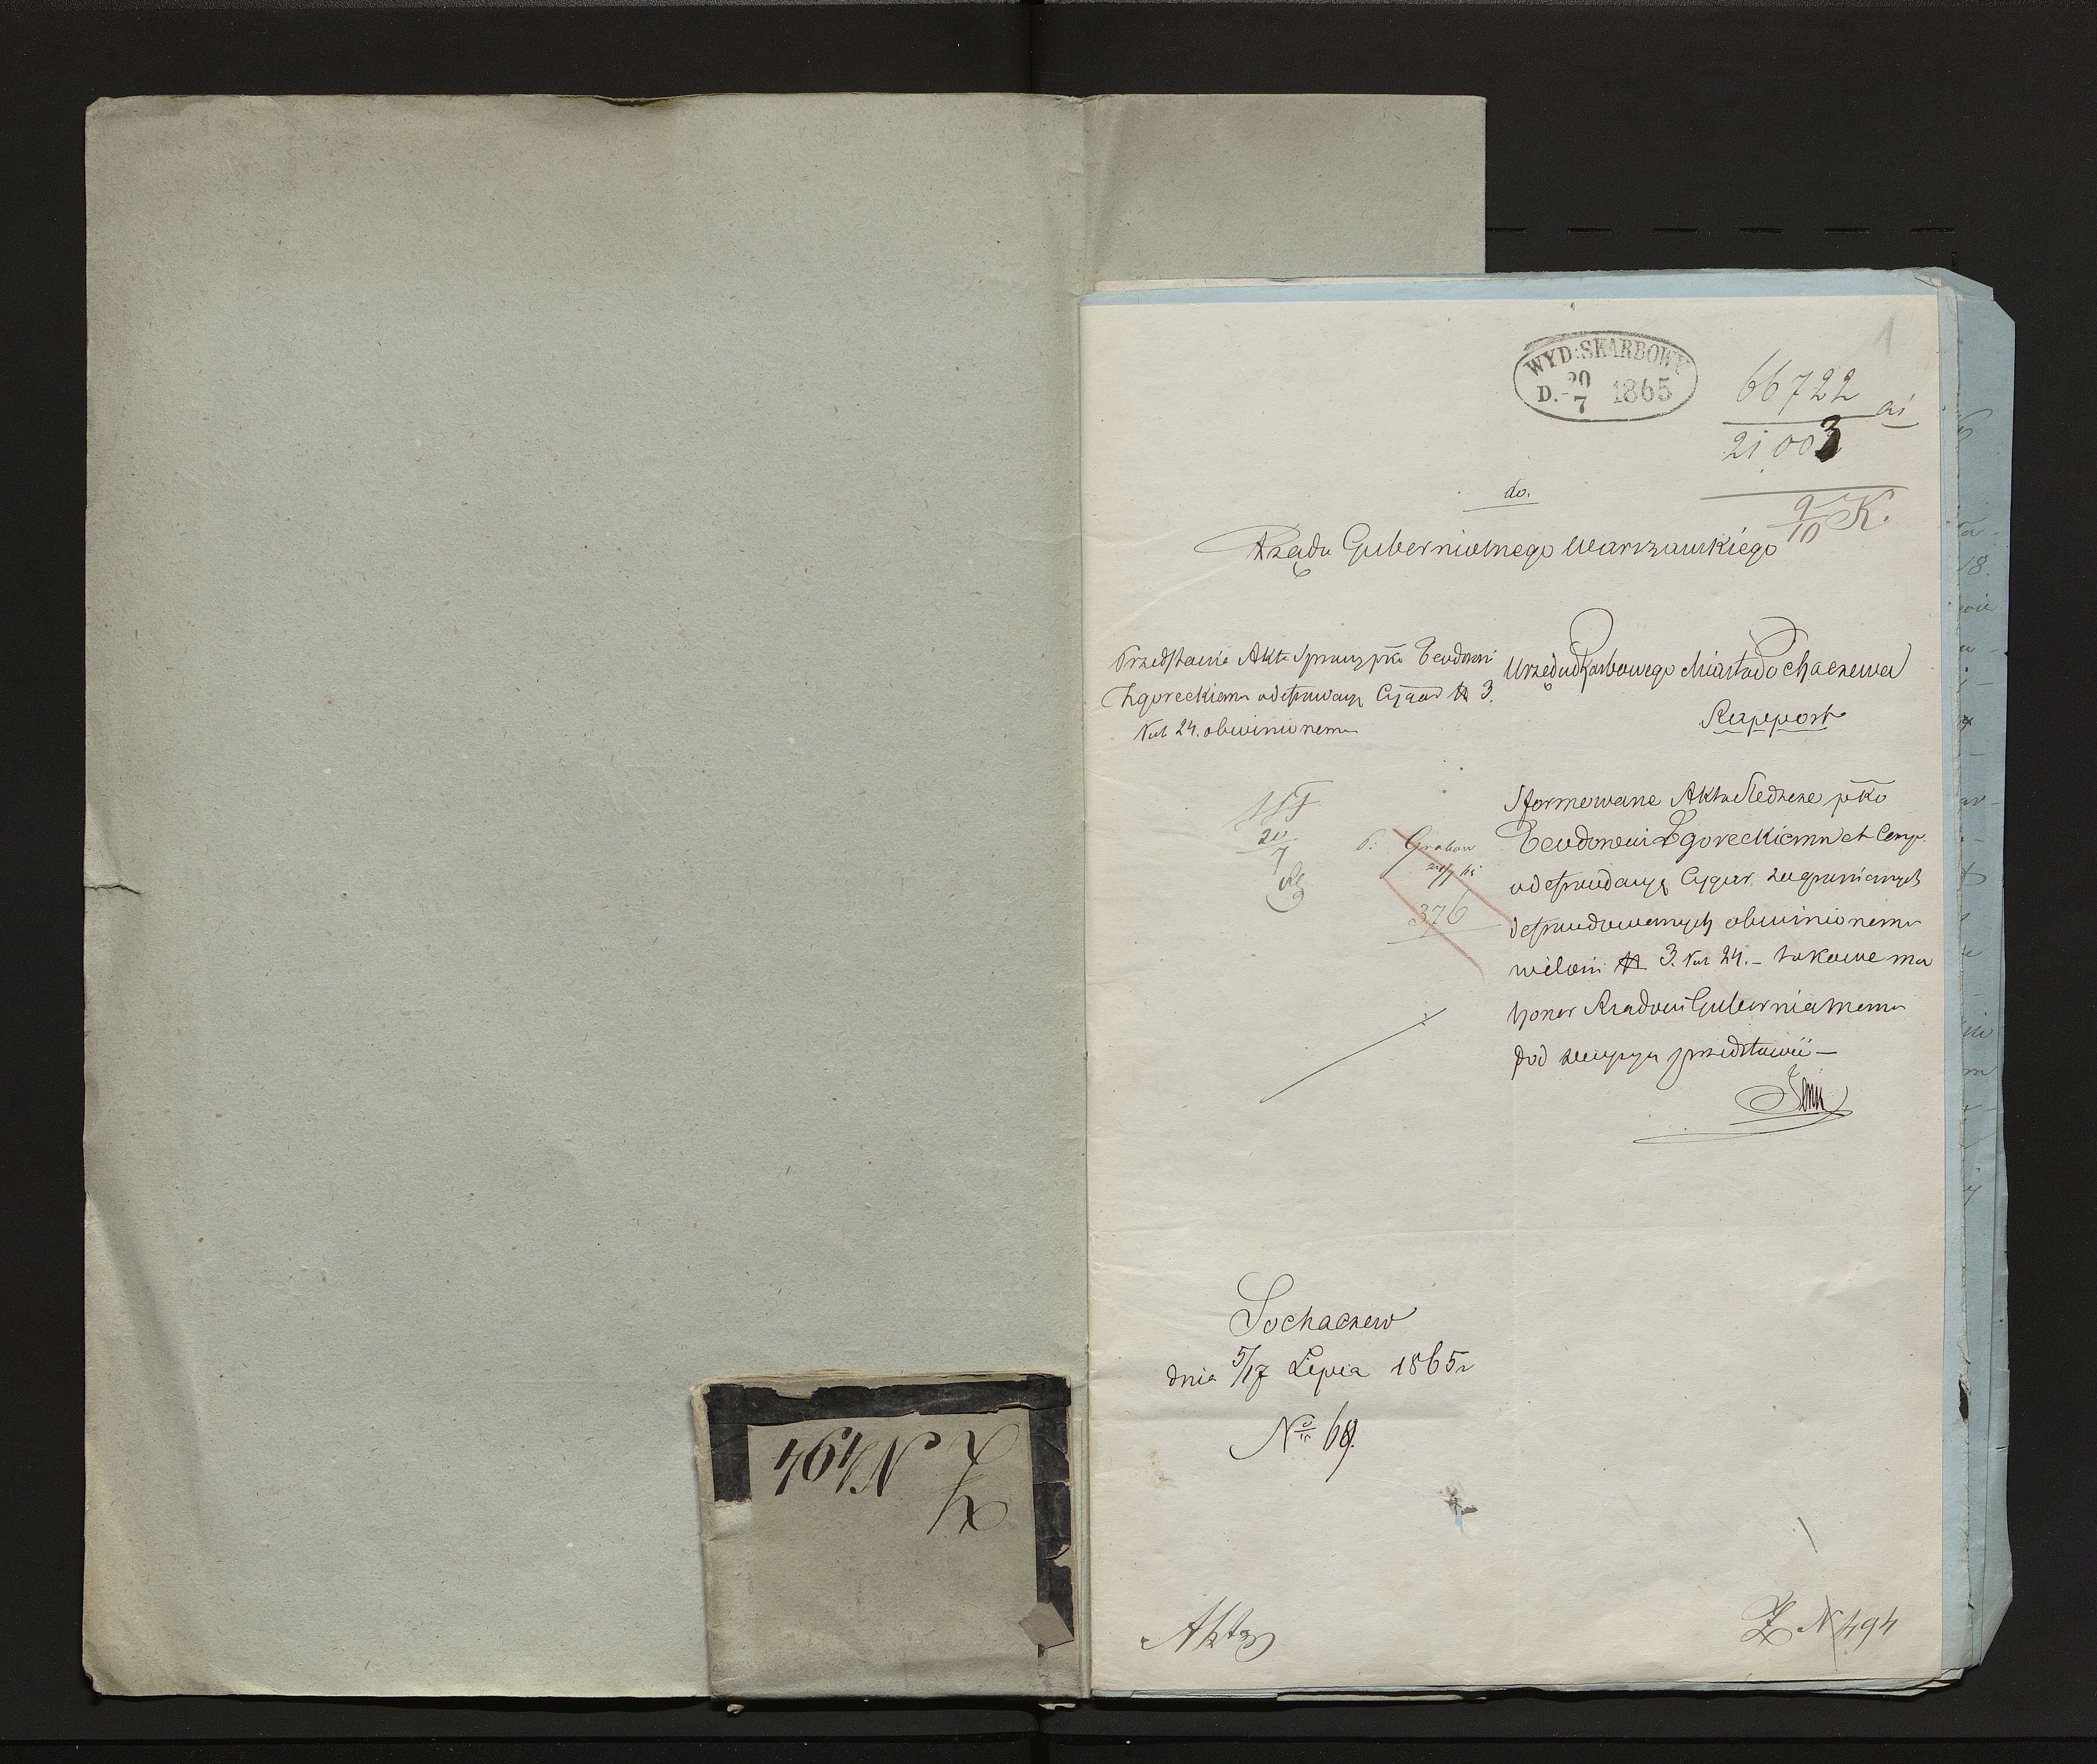 1
WYD: SKARBOWY
D. 20/7 1865
66722
21003
ai
9/10 K.
do.
Rządu Gubernialnego Warszawskiego
Przedstawia Akta Sprawy pko Teodorowi
Zgoreckiemu o defraudacyą Cygar ℔ 3.
łut 24. obwinionemu
Urzędu Skarbowego Miasta Sochaczewa
Rapport
Sformowane Akta Śledcze pko
Teodorowi Zgoreckiemu et Comp.
o defraudacyą Cygar zagranicznych
defraudowanych obwinionemu
w ilości ℔ 3. łut 24. – takowe ma
honor Rządowi Gubernialnemu
pod decyzyą przedstawić –
20
7
P. Grabow
376
Sochaczew
dnia 5/17 Lipca 1865 r
No 69.
Akta
Z N 494
Z N 494